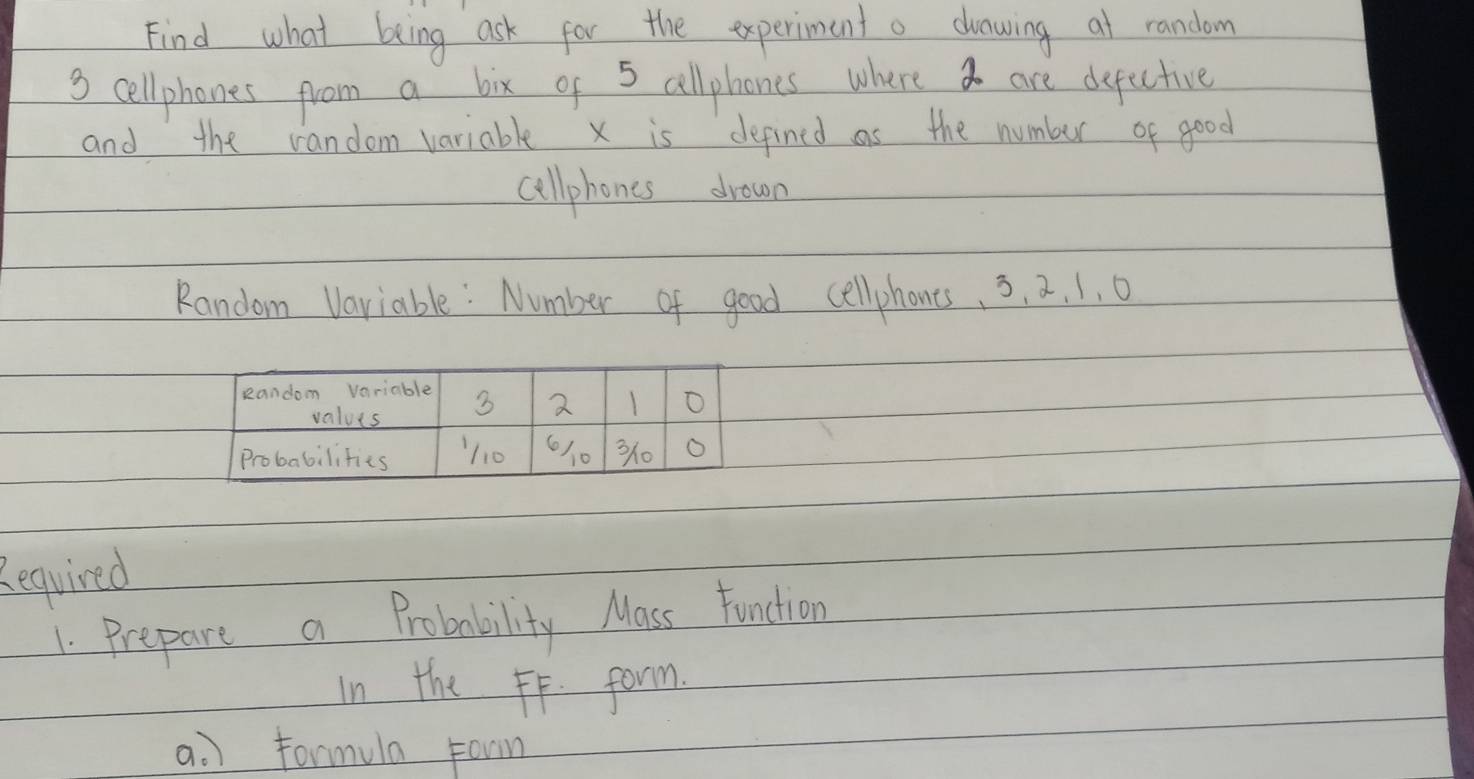 Find what being ask for the experiment o drawing at random
3 cellphones from a bix of 5 cellphones where 2 are defective
and the random variable x is defined as the number of good
cellphones drown
Random Variable: Number of good cellphones, 3, 2, 1, 0
Random Variable values 3 2 1 0
Probabilities 1/10 6/10 3/10 0
Required
1. Prepare a Probability Mass Function
in the FF. form.
a.) Formula Form